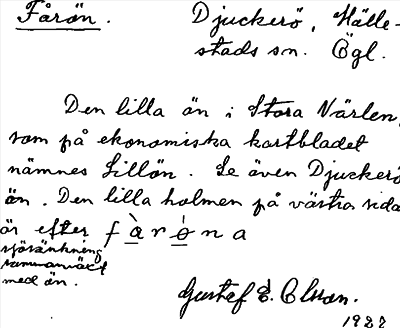 Fårön. Djuckerö, Hälle-
stads sn. Ögl.
Den lilla ön i Stora Värlen,
som på ekonomiska kartbladet
nämnes Lillön. Se även Djuckerö
ön. Den lilla holmen på västra sida
är efter fàrόna
sjösänkning
sammanväxt
med ön.
Gustaf E. Olsson.
1922